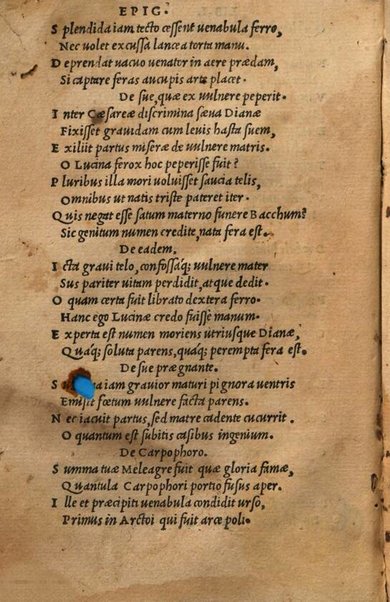 EPIG.
S plendida iam tecto cessent uenabula ferro,
Nec uolet excussa lancea torta manu.
D eprendat uacuo uenator in aere prædam,
Si captare feras aucupis arte placet.
De sue, quæ ex uulnere peperit.
I nter Cæsareæ discrimina sæua Dianæ
Fixisset grauidam cum leuis hasta suem,
E xiliit partus miseræ de uulnere matris.
O Lucina ferox hoc peperisse fuit?
P luribus illa mori uoluisset saucia telis,
Omnibus ut natis triste pateret iter.
Q uis negat esse satum materno funere Bacchum?
Sic genitum numen credite, nata fera est.
De eadem.
I cta graui telo, confossaq; uulnere mater
Sus pariter uitam perdidit, atque dedit.
O quam certa fuit librato dextera ferro.
Hanc ego Lucinæ credo fuisse manum.
E xperta est numen moriens utriusque Dianæ,
Quaq; soluta parens, quaq; perempta fera est.
De sue prægnante.
S iam grauior maturi pignora uentris
Emisit fœtum uulnere facta parens.
N ec iacuit partus, sed matre cadente cucurrit.
O quantum est subitis casibus ingenium.
De Carpophoro.
S umma tuæ Meleagre fuit quæ gloria famæ,
Quantula Carpophori portio fusus aper.
I lle et præcipiti uenabula condidit urso,
Primus in Arctoi qui fuit arce poli.